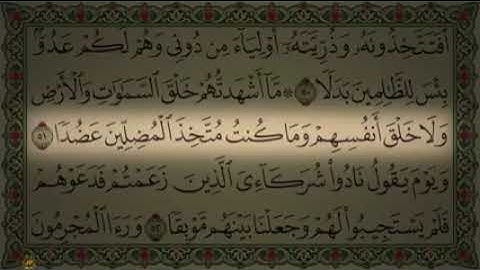 أَفَتَتَّخِذُونَهُۥ وَذُرِّيَّتَهُۥٓ أَوْلِيَآءَ مِن دُونِى وَهُمْ لَكُمْ عَدُوٌّۢ
بِئْسَ لِلظَّٰلِمِينَ بَدَلًا ۝٥٠ ۞ مَّآ أَشْهَدتُّهُمْ خَلْقَ ٱلسَّمَٰوَٰتِ وَٱلْأَرْضِ
وَلَا خَلْقَ أَنفُسِهِمْ وَمَا كُنتُ مُتَّخِذَ ٱلْمُضِلِّينَ عَضُدًا ۝٥١
وَيَوْمَ يَقُولُ نَادُوا۟ شُرَكَآءِىَ ٱلَّذِينَ زَعَمْتُمْ فَدَعَوْهُمْ
فَلَمْ يَسْتَجِيبُوا۟ لَهُمْ وَجَعَلْنَا بَيْنَهُم مَّوْبِقًا ۝٥٢ وَرَءَا ٱلْمُجْرِمُونَ